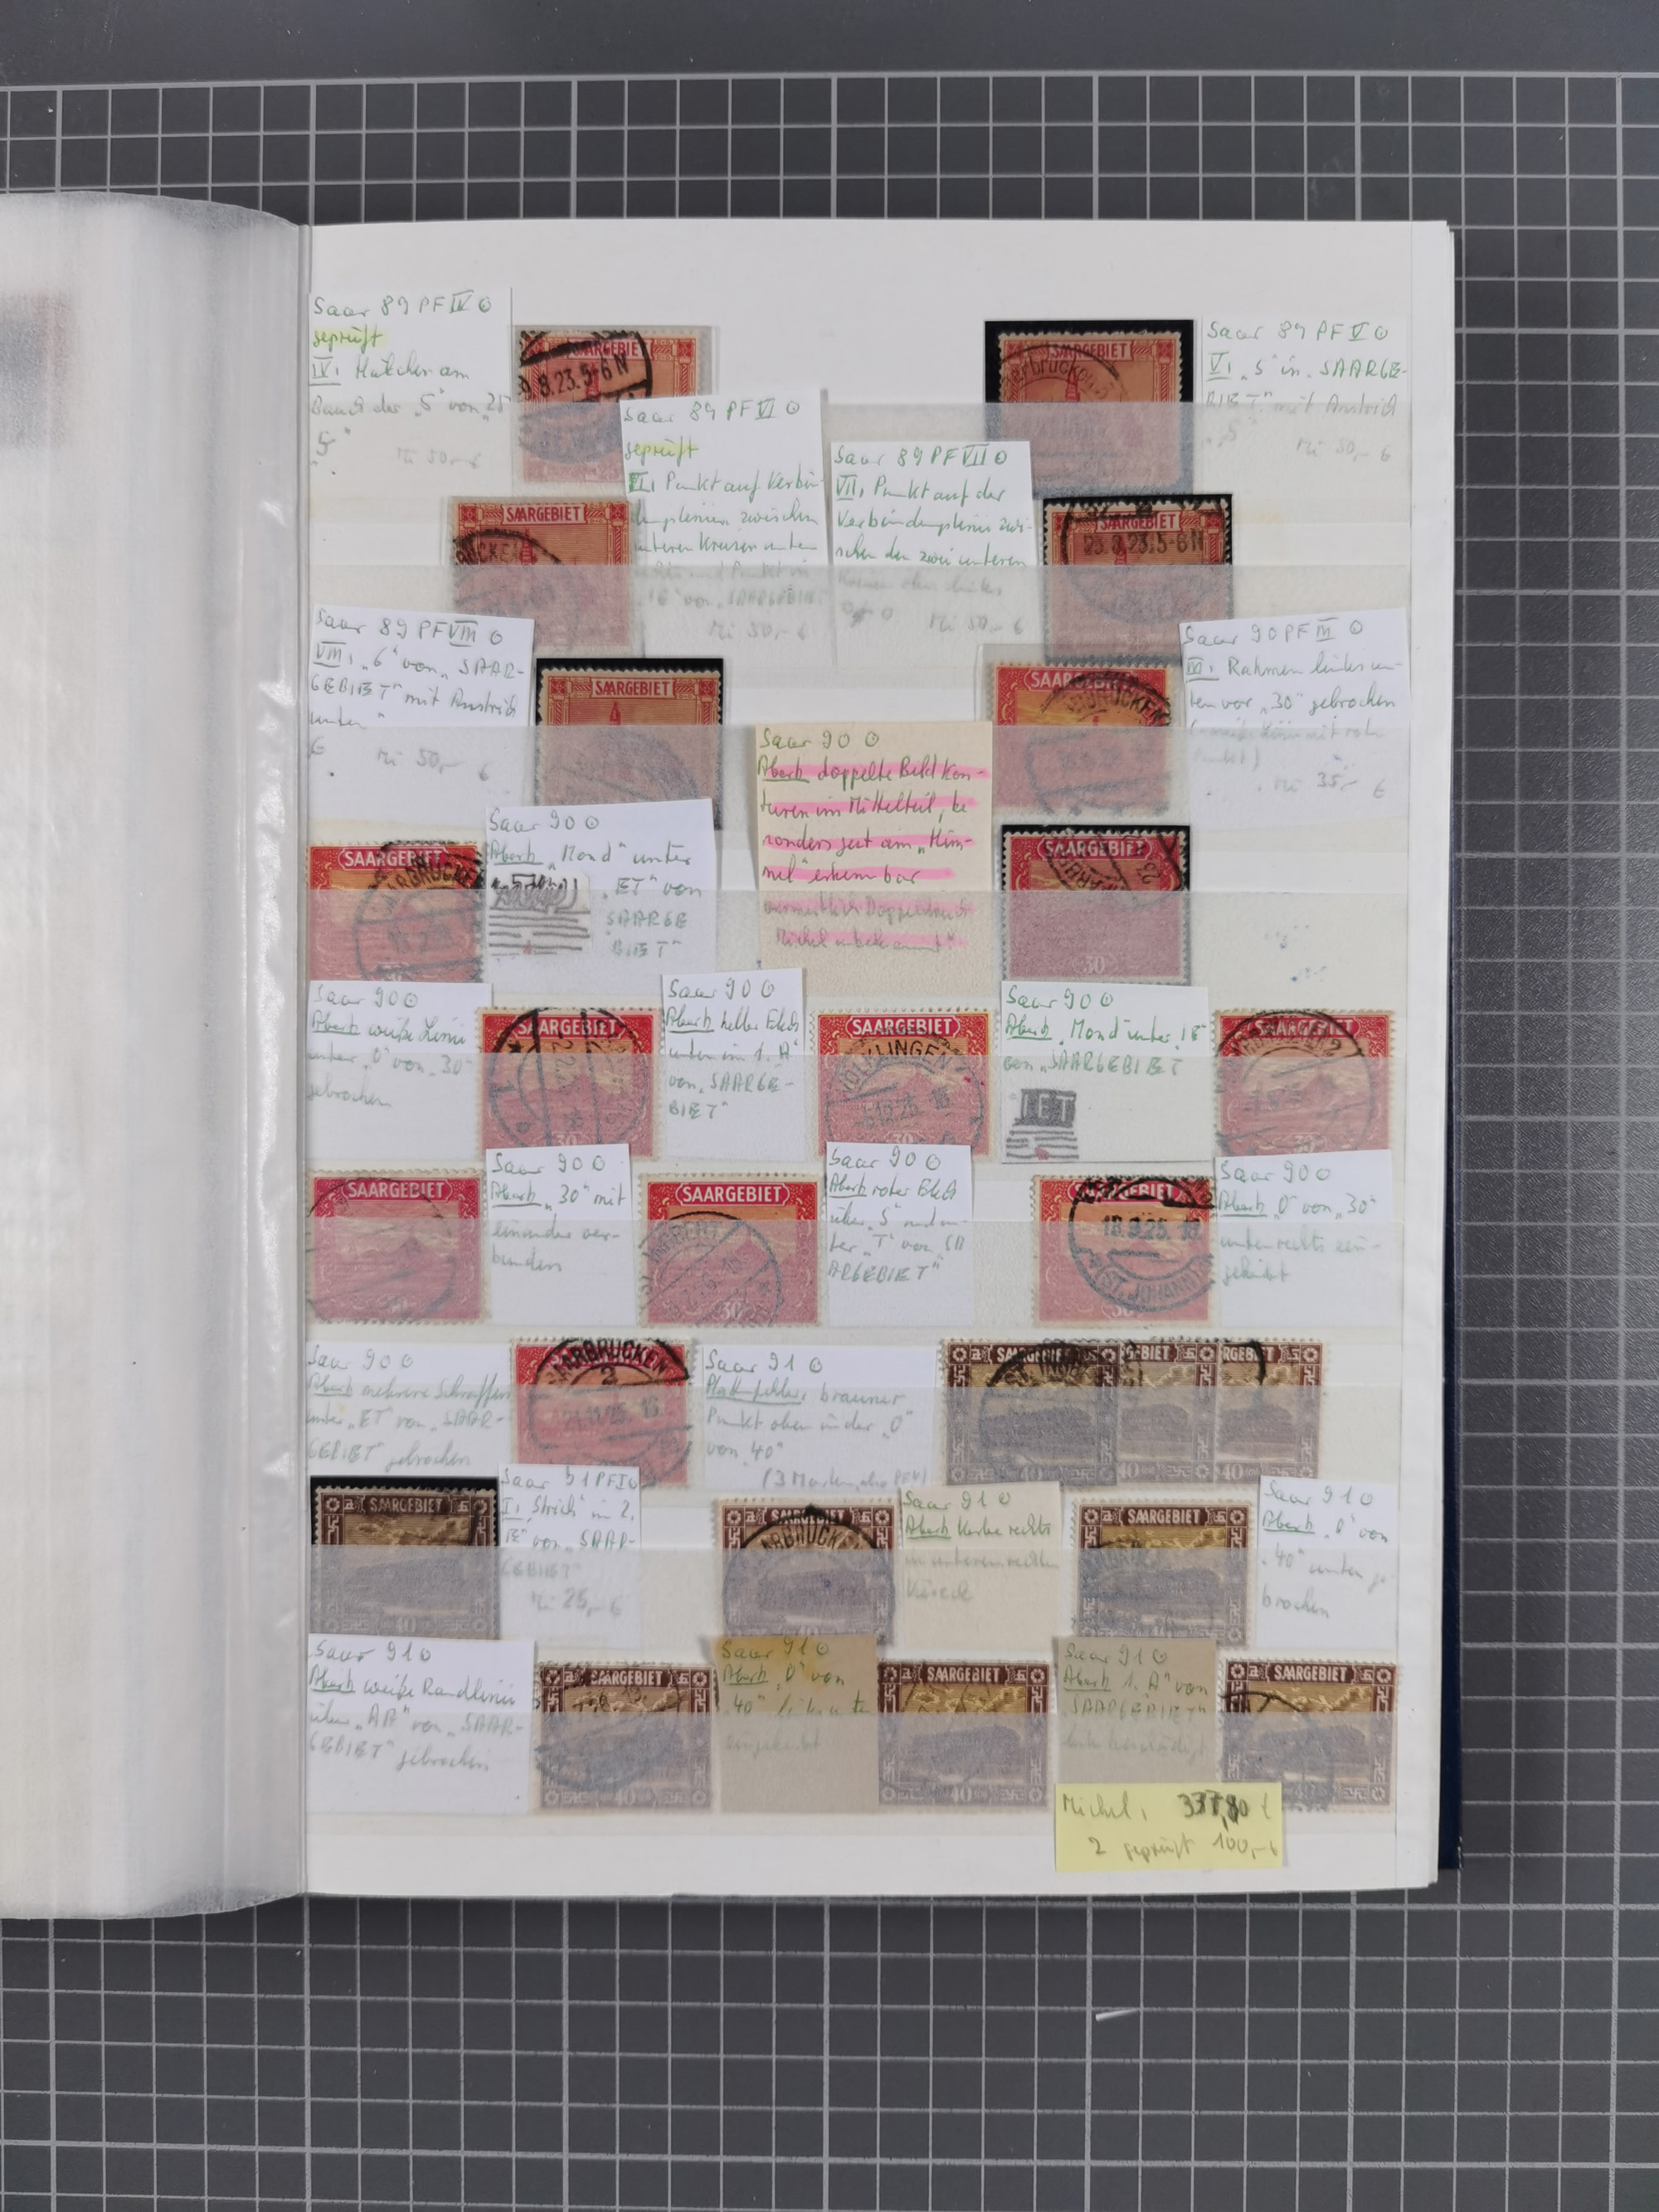 Saar 89 PF IV ⊙
geprüft
IV: Häkchen am
Bauch der "5" von "25"
"5"
Mi 50,- €
SAARGEBIET
9.8.23.5-6N
SAARGEBIET
Saar 89 PF V ⊙
V: "S" in "SAARGE-
BIET" mit Anstrich
"S"
Mi 50,- €
Saar 89 PF VI ⊙
geprüft
VI: Punkt auf Verbin-
dungslinien zwischen
unteren Kreisen unten
rechts und Punkt in
"IE" von "SAARGEBIET"
Mi 50,- €
Saar 89 PF VII ⊙
VII: Punkt auf der
Verbindungslinie zwi-
schen den zwei unteren
Kreisen oben links
Mi 50,- €
SAARGEBIET
SAARGEBIET
23.8.23.5-6N
Saar 89 PF VIII ⊙
VIII: "G" von "SAAR-
GEBIET" mit Anstrich
unten
G
Mi 50,- €
SAARGEBIET
SAARGEBIET
Saar 90 PF III ⊙
III: Rahmen links un-
ten vor "30" gebrochen
Mi 35,- €
Saar 90 ⊙
Abart doppelte Bild Kon-
turen im Mittelteil, be
sonders gut am "Him-
mel" erkennbar
vermutlich Doppeldruck
Michel unbekannt
SAARGEBIET
SAARBRÜCKEN
Saar 90 ⊙
Abart "Mond" unter
"ET" von
SAARGE
BIET"
SAARGEBIET
30
Saar 90 ⊙
Abart weiße Linie
unter "0" von "30"
gebrochen
SAARGEBIET
30
Saar 90 ⊙
Abart heller Fleck
unten im 1. "A"
von "SAARGE-
BIET"
SAARGEBIET
VÖLKLINGEN
30
Saar 90 ⊙
Abart "Mond" unter "IE"
von "SAARGEBIET
IET
SAARGEBIET
30
SAARGEBIET
30
Saar 90 ⊙
Abart "30" mit
einander ver-
bunden
SAARGEBIET
30
Saar 90 ⊙
Abart roter Fleck
über "S" und un-
ter "T" von "SA
ARGEBIET"
SAARGEBIET
18.9.25.
(ST. JOHANN)
30
Saar 90 ⊙
Abart "0" von "30"
unten rechts ein-
gekerbt
Saar 90 ⊙
Abart mehrere Schraffen
unter "ET" von "SAAR-
GEBIET" gebrochen
SAARBRÜCKEN
2
21.11.25. 16
Saar 91 ⊙
Plattenfehler: brauner
Punkt oben in der "0"
von "40"
(3 Marken,
SAARGEBIET
GEBIET
40
RGEBIET
40
SAARGEBIET
40
Saar 91 PF I ⊙
I: Strich in 2.
"E" von "SAAR-
GEBIET"
Mi 25,- €
SAARGEBIET
SAARBRÜCKEN
40
Saar 91 ⊙
Abart Kerbe rechts
im unteren rechten
SAARGEBIET
40
Saar 91 ⊙
Abart "0" von
"40" unten ge
brochen
Saar 91 ⊙
Abart weiße Randlinie
über "AA" von "SAAR-
GEBIET" gebrochen
SAARGEBIET
40
Saar 91 ⊙
Abart "0" von
"40" links unten
eingekerbt
SAARGEBIET
40
Saar 91 ⊙
Abart 1. "A" von
"SAARGEBIET"
links beschädigt
SAARGEBIET
Michel:
2 geprüft 100,- €